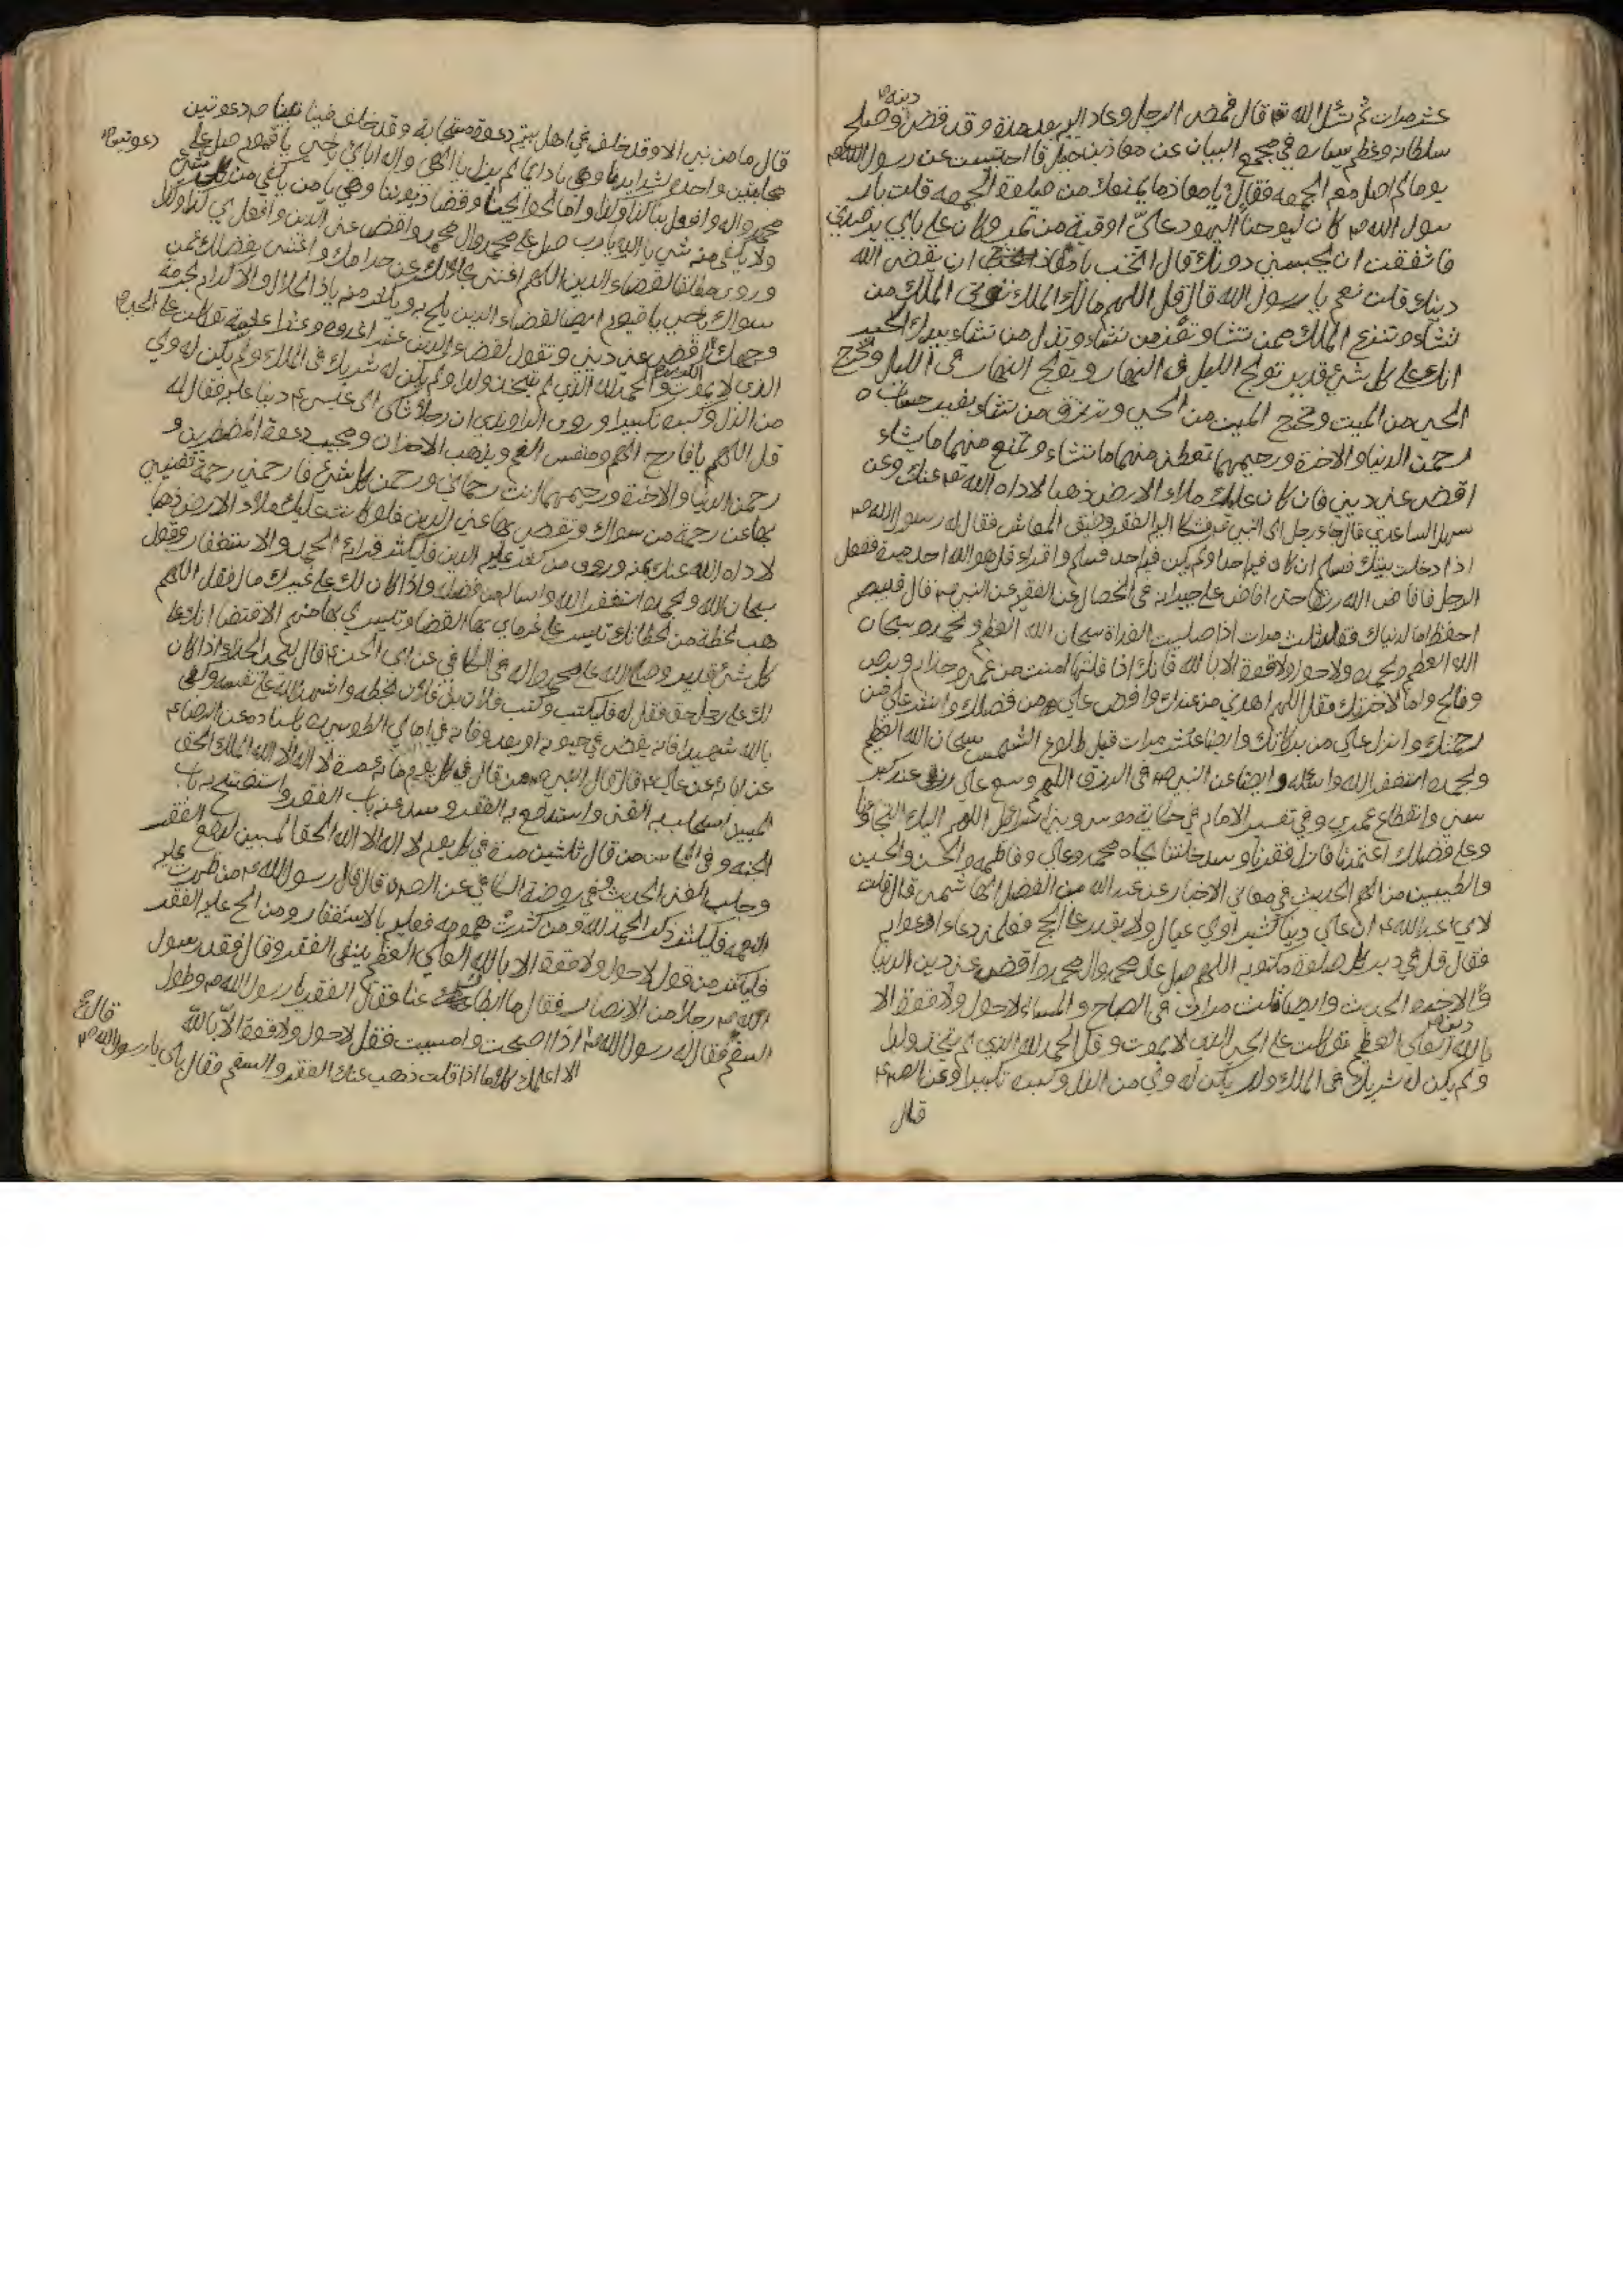 دينه
عشر مرات ثم تسئل الله قال فمضى الرجل وعاد اليه بعد مدة وقد قضى وصلح
سلطانه وعظم يساره في مجمع البيان عن معاذ بن جبل قا احتبست عن رسول الله ص
يوما لم اصل معه الجمعه فقال يا معاذ ما يمنعك من صلوة الجمعه قلت يار
سول الله ص كان ليوحنا اليهود علي اوقية من تبر وكان على بابي يرصدني
فاشفقت ان يحبسني دونك قال اتحب يا معاذ ان يقضي الله
دينك قلت نعم يا رسول الله قال قل اللهم مالك الملك تؤتي الملك من
تشاء وتنزع الملك ممن تشاء وتعز من تشاء وتذل من تشاء بيدك الخير
انك على كل شئ قدير تولج الليل في النهار وتولج النهار في الليل وتخرج
الحي من الميت وتخرج الميت من الحي وترزق من تشاء بغير حساب
رحمن الدنيا والاخرة ورحيمهما تعطي منهما ما تشاء وتمنع منهما ما تشاء
اقض عني ديني فان كان عليك ملاء الارض ذهبا لاداه الله عنك وعن
سهل الساعدي قال جاء رجل الى النبي فشكا اليه الفقر وضيق المعاش فقال له رسول الله ص
اذا دخلت بيتك فسلم ان كان فيه احد او لم يكن فيه احد فسلم واقراء قل هو الله احد مرة ففعل
الرجل فافاض الله رزقا حتى افاض على جيرانه في الخصال عن الفقيه عن النبي ص قال
احفظ اما لدنياك فقل ثلث مرات اذا صليت الغداة سبحان الله العظيم وبحمده سبحان
الله العظيم وبحمده ولا حول ولا قوة الا بالله فانك اذا قلتها امنت من عمى وجذام وبرص
وفالج واما لاخرتك فقل اللهم اهدني من عندك وافض علي من فضلك وانشر علي من
رحمتك وانزل علي من بركاتك وايضا عشر مرات قبل طلوع الشمس سبحان الله العظيم
وبحمده استغفر الله واسئله وايضا عن النبي ص في الرزق اللهم وسع علي رزقي عند كبر
سني وانقطاع عمري وفي تفسير الامام في حكاية موسى وبني اسرائيل اللهم اليك التجأنا
وعلى فضلك اعتمدنا فازل فقرنا وسد خلتنا بجاه محمد وعلي وفاطمه والحسن والحسين
والطيبين من الهم الحديث في معاني الاخبار عن عبد الله بن الفضل الهاشمي قال قلت
لابي عبد الله ع ان علي دينا كثيرا ولي عيال ولا يقدر على الحج فعلمني دعاء ادعوا به
فقال قل في دبر كل صلوة مكتوبه اللهم صل على محمد وال محمد واقض عني دين الدنيا
والاخره الحديث وايضا ثلث مرات في الصباح والمساء لا حول ولا قوة الا
بالله العلي العظيم توكلت على الحي الذي لا يموت وقل الحمد لله الذي لم يتخذ ولدا
ولم يكن له شريك في الملك ولم يكن له ولي من الذل وكبره تكبيرا وعن الص ع
قال
قال ما من نبي الا وقد خلف في اهل بيته دعوة مستجابة وقد خلف فينا نبينا ص دعوتين
مجابتين واحدة لشدايدنا وهي يا دايما لم يزل يا الهي واله ابائي يا حي يا قيوم صل على
محمد واله وافعل بنا كذا وكذا واما لحوايجنا وقضاء ديوننا وهي يا من يكفي من كل شئ
ولا يكفي منه شي يا الله يا رب صل على محمد وال محمد واقض عني الدين وافعل لي كذا وكذا
وروى مطلقا لقضاء الدين اللهم اغنني بحلالك عن حرامك واغنني بفضلك عمن
سواك يا حي يا قيوم ايضا لقضاء الدين يلح به ويكثر منه يا ذا الجلال والاكرام بحرمة
وجهك اقض عني ديني وتقول لقضاء الدين عشرا غدوة وعشرا عشية توكلت على الحي
الذي لا يموت والحمد لله الذي لم يتخذ ولدا ولم يكن له شريك في الملك ولم يكن له ولي
من الذل وكبره تكبيرا وروى الراوندي ان رجلا شكى الى عيسى ع دينا عليه فقال له
قل اللهم يا فارج الهم ومنفس الغم ويذهب الاحزان ومجيب دعوة المضطرين و
رحمن الدنيا والاخرة ورحيمهما انت رحماني ورحمن كل شئ فارحمني رحمة تغنيني
بها عن رحمة من سواك وتقضي بها عني الدين فلو كانت عليك ملاء الارض ذهبا
لاداه الله عنك بمنه وروى من تعذر عليه الدين فليكثر قراءة الحمد والاستغفار وقول
سبحان الله وبحمده استغفر الله واساله من فضله واذا كان لك على غيرك مال فقل اللهم
هب لحظة من لحظاتك تيسر على غرماي بها القضاء وتيسر لي بها منهم الاقتضا انك على
كل شئ قدير وصلى الله على محمد واله في الكافي عن ابي الحسن ع قال اذا كان
لك على رجل حق فقل له فليكتب وكتب فلان بن فلان بخطه واشهد الله على نفسه وكفى
بالله شهيدا فانه يقضى في حيوته او بعد وفاته في امالي الطوسي باسناده عن الرضا ع
عن ابائه عن علي ع قال قال النبي ص من قال في كل يوم مائة مرة لا اله الا الله الملك الحق
المبين استجلب به الغنى واستدفع به الفقر وسد عنه باب الفقر واستفتح به باب
الجنه وفي المحاسن من قال ثلثين مرة في كل يوم لا اله الا الله الحق المبين لدفع الفقر
وجلب الغنى الحديث وفي روضة الكافي عن الص ع قال قال رسول الله ص من ظهرت عليه
النعمه فليكثر ذكر الحمد لله ومن كثرت همومه فعليه بالاستغفار ومن الح عليه الفقر
فليكثر من قول لا حول ولا قوة الا بالله العلي العظيم ينفى الفقر وقال فقد رسول
الله ص رجلا من الانصار فقال ما ابطا بك عنا فقال الفقر يا رسول الله ص وطول
السقم فقال له رسول الله ص اذا اصبحت وامسيت فقل لا حول ولا قوة الا بالله
الا اعلمك كلاما اذا قلت ذهب عنك الفقر والسقم فقال بلى يا رسول الله ص